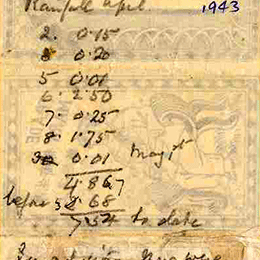 Rainfall April 1943
2. 0.15
3. 0.20
5 0.01
6. 2.50
7. 0.25
8. 1.75
0.01 May 1st
4.867
before 3 2.68
7.54 to date